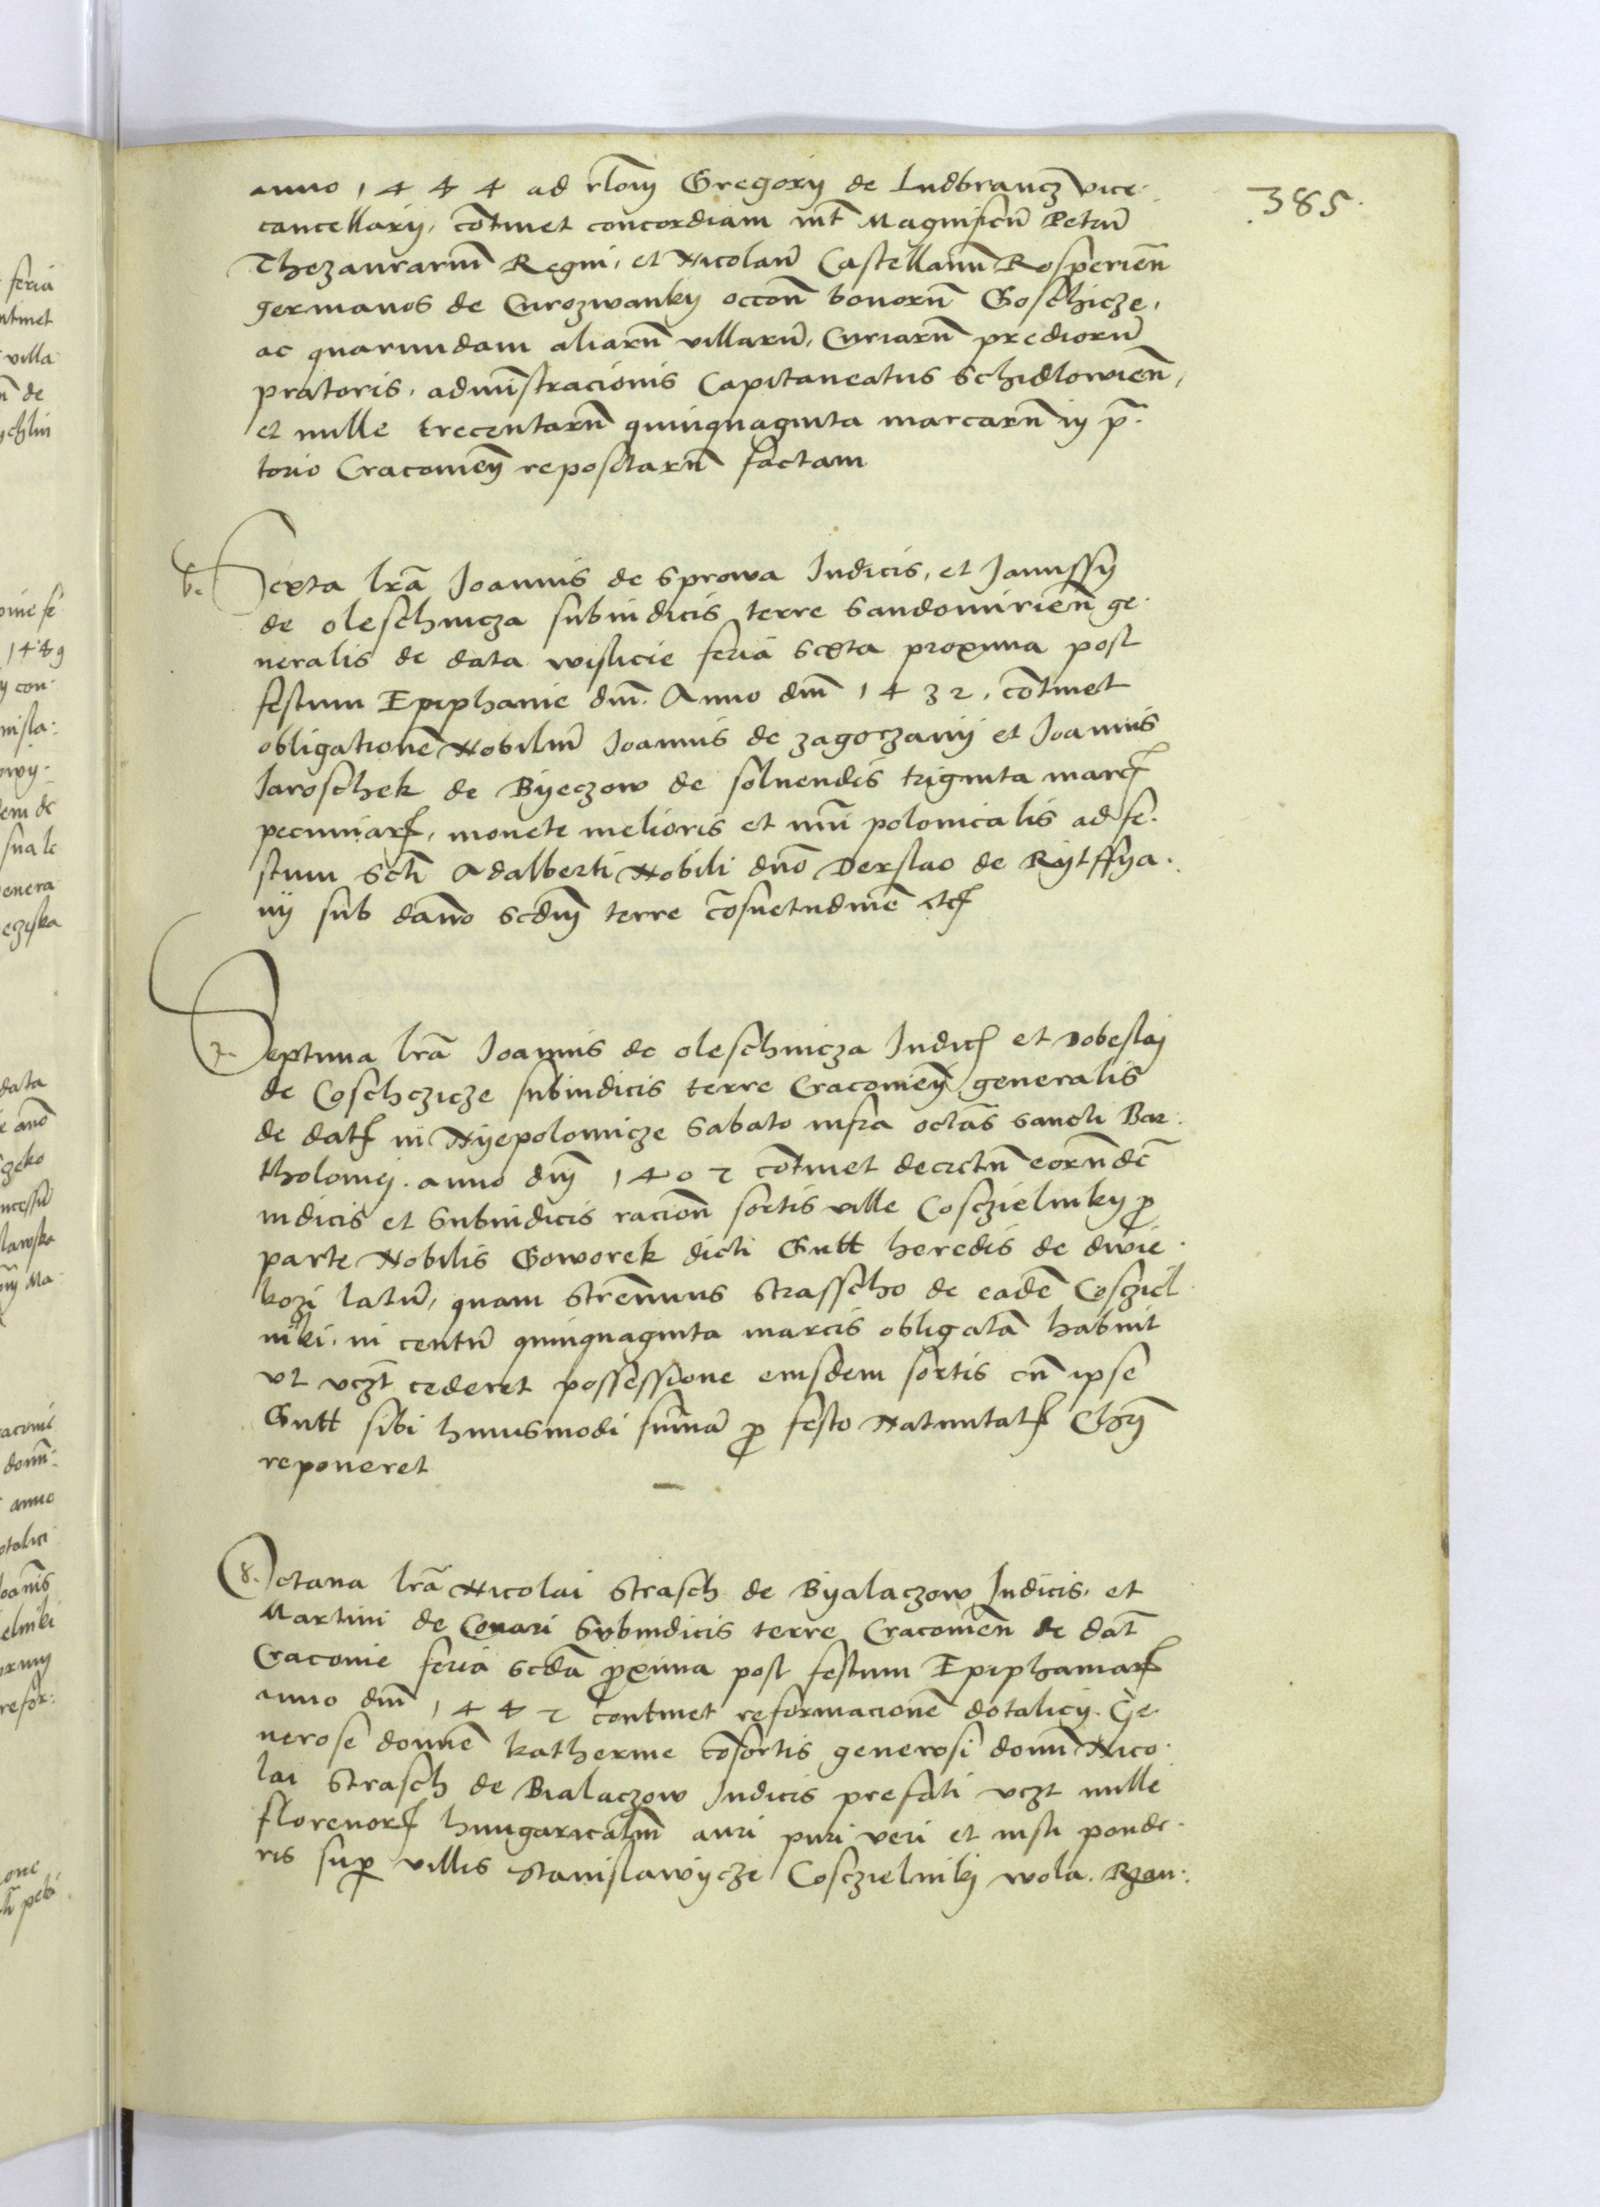 385.
anno 1444 ad rl̃om̃ Gregorij de Ludbrancz vice-
cancellarij, cõtinet concordiam int̃ Magnificũ Petrũ
Thezaurariũ Regni, et Nicolaũ Castellanũ Rosperieñ
germanos de Curozwanky occoñ bonorũ Goschicze,
ac quarundam aliarũ villarũ, Curiarũ prediorũ
pratoris, admĩstracionis Capitaneatus Schidlowieñ,
et mille trecentarũ quinquaginta marcarũ in p̃-
torio Cracoвieñ repositarũ factam
6. Sexta lr̃a Joannis de Sprowa Iudicis, et Janussij
de Oleschnicza subiudicis terre Sandomirieñ ge-
neralis de data Wislicie feria sexta proxima post
festum Epiphanie dñi. Anno dñi 1432, cõtinet
obligationẽ Nobiliũ Joannis de Zagorzany et Joannis
Jaroschek de Byeczow de soluendis triginta marc̃
pecuniar̃, monete melioris et nũi polonicalis ad fe-
stum Scti Adalberti Nobili dño Derslao de Rytffya-
ny sub dãno scdm̃ terre cõsuetudinẽ etc̃
7. Septima lr̃a Joannis de Oleschnicza Iudic̃ et Dobeslaj
de Coschczicze subiudicis terre Cracouieñ generalis
de dat̃ in Nyepolomicze Sabato infra octãs Sancti Bar-
tholomej. anno dñi 1402 cõtinet decretũ eorũdẽ
iudicis et Subiudicis racioñ sortis ville Cosczielniky p̱
parte Nobilis Goworek dicti Gutt heredis de dwie-
kozi latũ, quam Strẽnuus Strasscho de eadẽ Cosziel-
niki, in centũ quinquaginta marcis obligatã habuit
vt vczt̃ cederet possessione eiusdem sortis cũ ipse
Gutt sibi huiusmodi sũmã p̱ festo Natiuitat̃ Chr̃i
reponeret
8. Octaua lr̃a Nicolai Strasch de Byalaczow Iudicis, et
Martini de Conari Subiudicis terre Cracouieñ de dat̃
Cracouie feria scdã p̱xima post festum Epiphaniar̃
anno dñi 1442 continet reformacionẽ dotalicij. Ge-
nerose domnẽ Katherine cõsortis generosi domñ Nico-
lai Strasch de Bialaczow Iudicis prefati vczt mille
florenor̃ hungaricaliũ auri puri veri et iusti ponde-
ris sup̱ villis Stanislawycze Cosczielnikj Wola. Rzan-